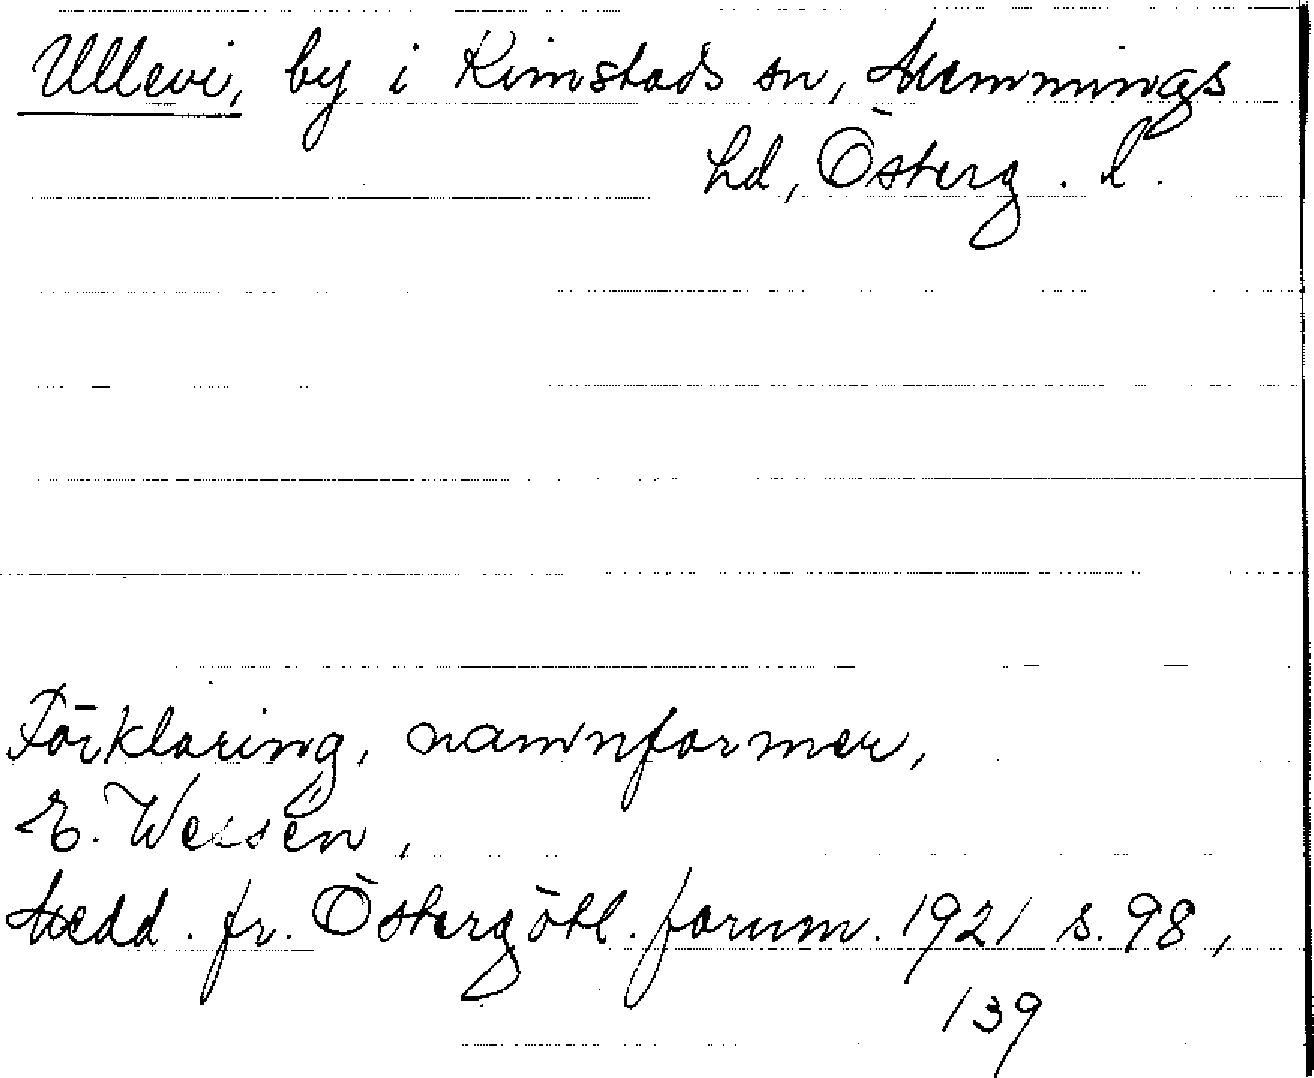 Ullevi, by i Kimstads sn, Memmings
hd, Österg. l.
Förklaring, namnformer,
E. Wessén,
Medd. fr. Östergötl. fornm. 1921 s. 98,
139